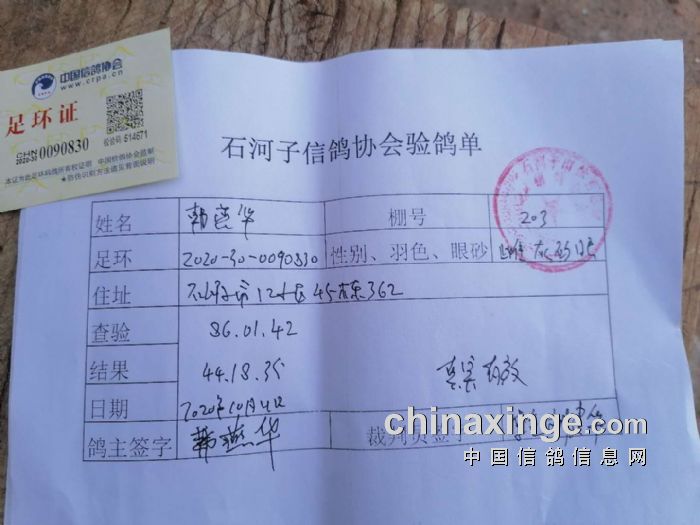 中国信鸽协会
www.crpa.cn
足环证
CHN
2020-30 0090830
校验码 514671
本证为此足环鸽拥有权证明 中国信鸽协会监制
*防伪识别方法请见背面说明
石河子信鸽协会验鸽单
姓名 韩燕华 棚号 203
足环 2020-30-0090830 性别、羽色、眼砂 雄 灰
住址 石河子市12小区45栋362
查验 86.01.42
结果 44.18.35 真实有效
日期 2020年10月4日
鸽主签字 韩燕华 裁判员签字
chinaxinge.com
中国信鸽信息网